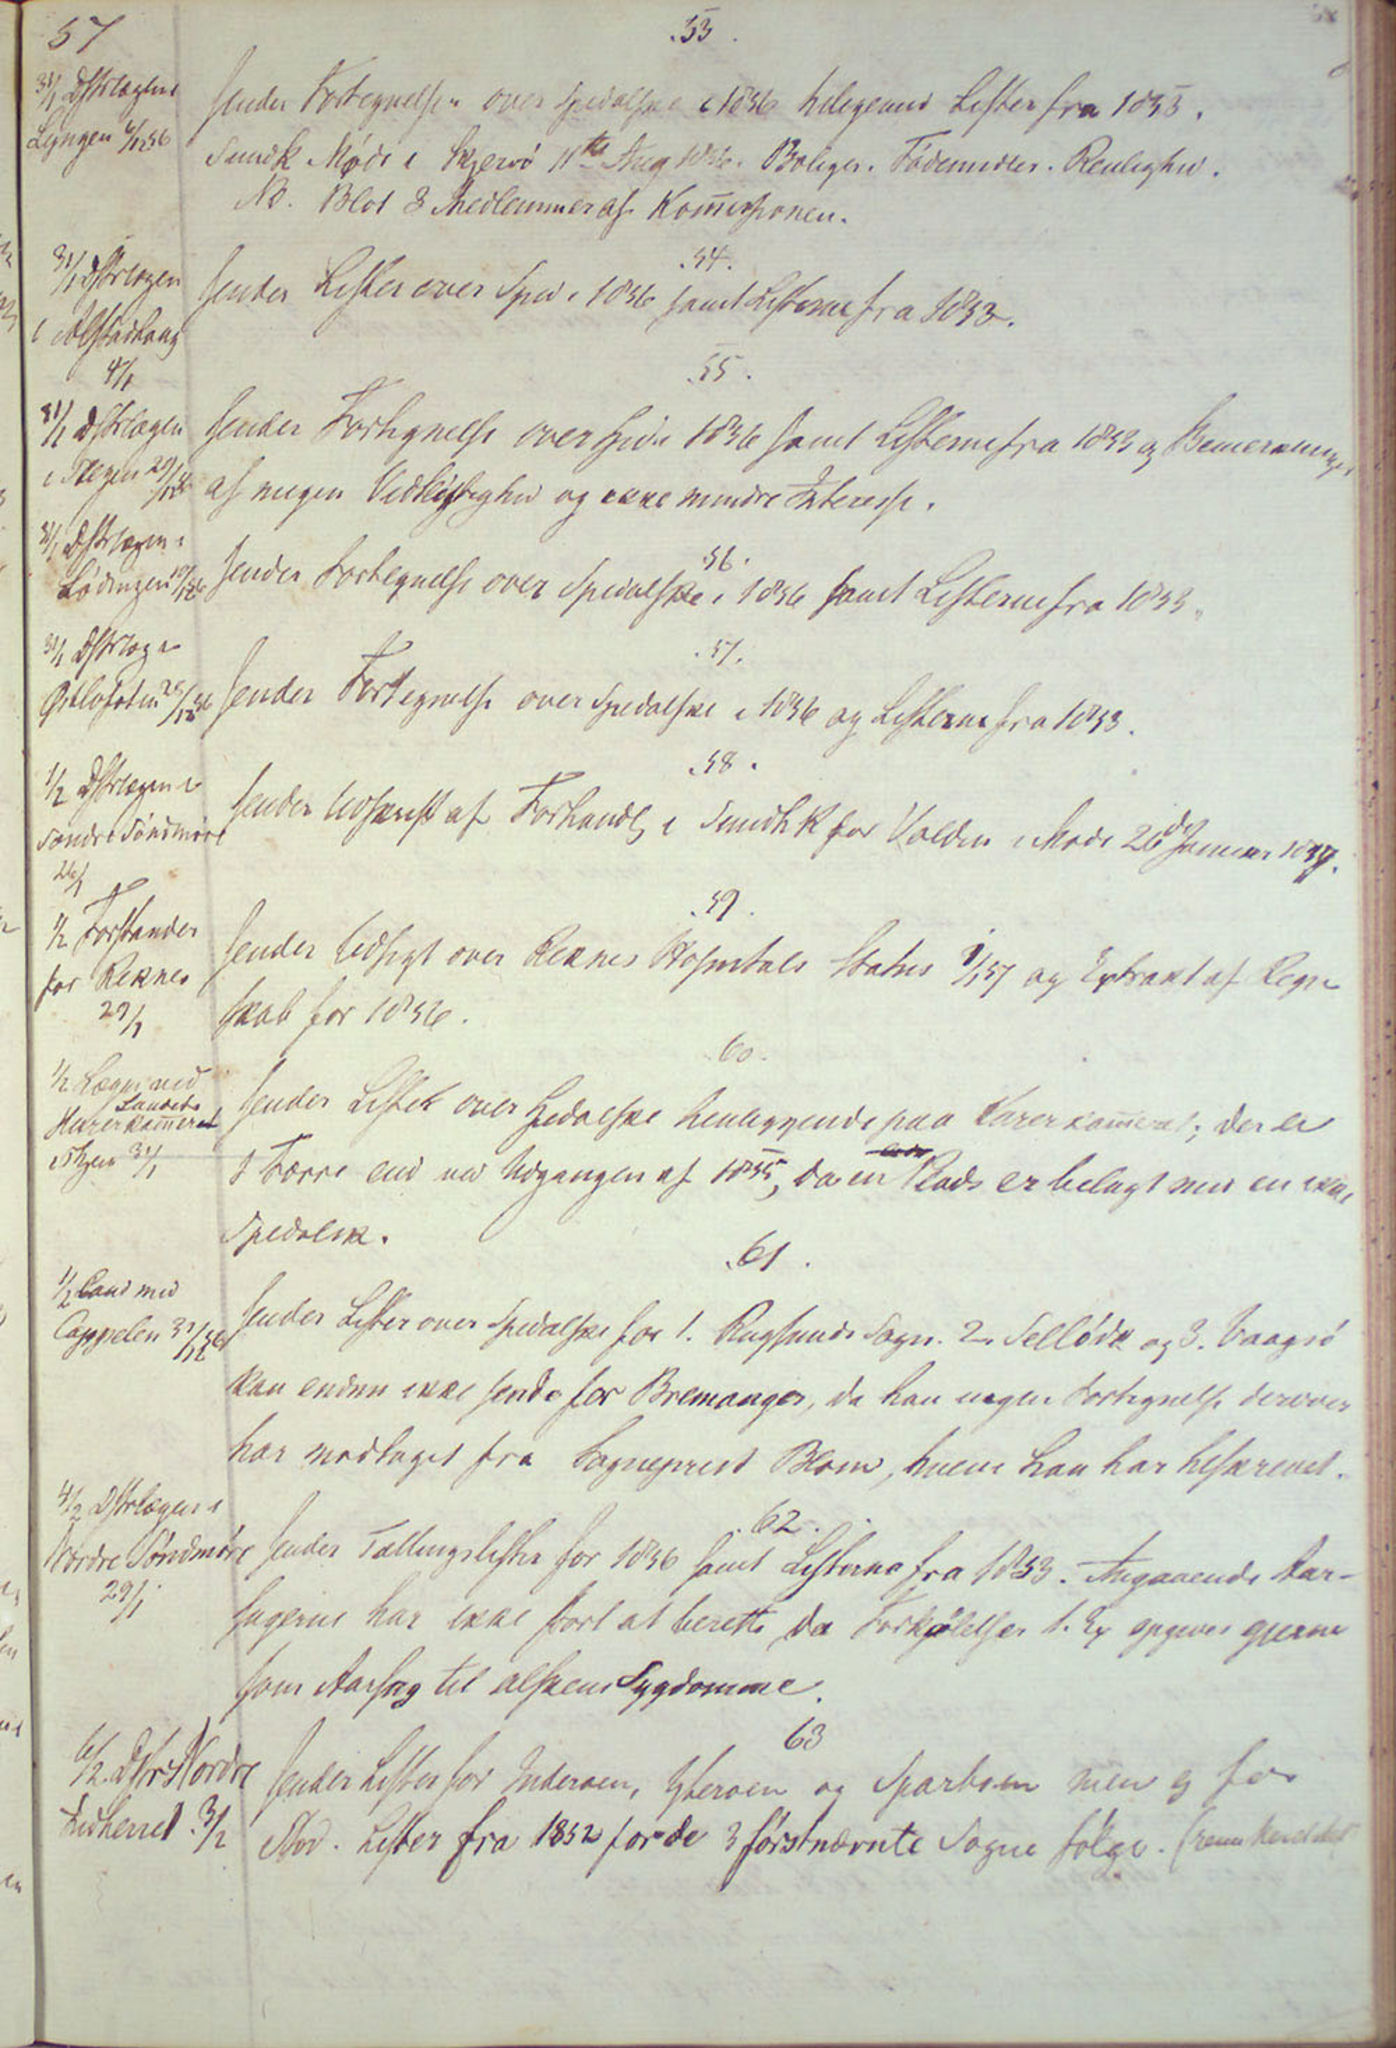 57
.53.
31/1 Dstrlægen i
Lyngen 6/12 56
Sender Fortegnelse over spedalske i 1856 tilligemed Lister fra 1855.
Sundk Møde i Skjervø 11te Aug 1856. Boliger. Fødemidler. Renlighed.
NB. Blot 3 Medlemmer af Kommissionen.
.54.
31/1 Dstrlægen
i Alstadhaug
4/1
Sender Lister over Sped. i 1856 samt Listerne fra 1853.
.55.
31/1 Dstrlægen
i Steigen 29/12 56
Sender Fortegnelse over sped. i 1856 samt Listerne fra 1853 og Bemerkninger
af megen Vidløftighed og ikke mindre Interesse.
.56.
31/1 Dstrlægen i
Lødingen 19/12 56
Sender Fortegnelse over Spedalske i 1856 samt Listerne fra 1853.
.57.
31/1 Dstrlæg i
Østlofoten 28/12 56
Sender Fortegnelse over Spedalske i 1856 og Listerne fra 1853.
.58.
1/2 Dstrlægen i
Søndre Søndmøre
26/1
Sender Udskrift af Forhandlg i Sundhk for Volden i Møde 20de Januar 1857.
.59.
1/2 Forstander
for Reknes
29/1
Sender Udsigt over Reknes Hospitals Status 1/1 57 og Extrakt af Regn-
skab for 1856.
60.
1/2 Lægen ved
Sandets
Kurerkammeret
31/1
Sender Lister over Spedalske henliggende paa Kurerkammeret; der er
1 Færre end ved Udgangen af 1855, da en Plads er belagt med en ikke
Spedalsk.
.61.
1/2 Cand med
Cappelen 31/12 56
Sender Lister over Spedalske for 1. Rugsunds Sogn. 2. Selløde og 3. Vaagsø
kan endnu ikke sende for Bremanger, da han ingen Fortegnelse derover
har modtaget fra Sogneprest Blom, hvem han har tilskrevet.
.62.
4/2 Dstrlægen i
Nordre Søndmøre
29/1
Sender Tællingslister for 1856 samt Listerne fra 1853. Angaaende Aar-
sagerne har ikke stort at berette, da Forkjølelse t. Ex opgives gjerne
som Aarsag til alskens Sygdomme.
63
6/2. Dstr Nordre
Indherred. 3/2
Sender Lister for Inderøen, Ytterøen og Sparboen men ej for
Stod. Lister fra 1852 for de 3 førstnævnte Sogne følge.